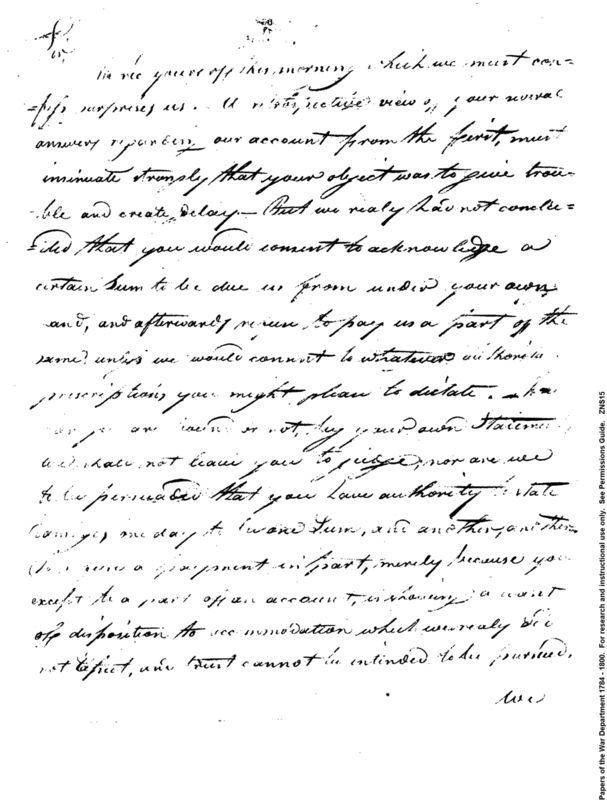 Sir
We rec yours of this morning which we must con=
=fess surprises us. A retrospective view of your several
answers regarding our account from the first, must
insinuate strongly that your object was to give trou=
=ble and create delay— But we realy had not conclu=
=ded that you would consent to acknowledge a
certain Sum to be due us from under your own
and, and afterwards refuse to pay us a part of the
same unless we would connect to whatever
prescriptions you might please to dictate.
you are bound or not, by your own Statement
we shall not leave you to judge, nor are we
to be persuaded that you have authority to state
one day to be one Sum, and another, another
a payment in part, merely because you
except to a part of an account, is shewing a want
of disposition to accommodation which we realy did
not expect, and trust cannot be intended to be pursued.
We
Papers of the War Department 1784 - 1800. For research and instructional use only. See Permissions Guide. ZNS15